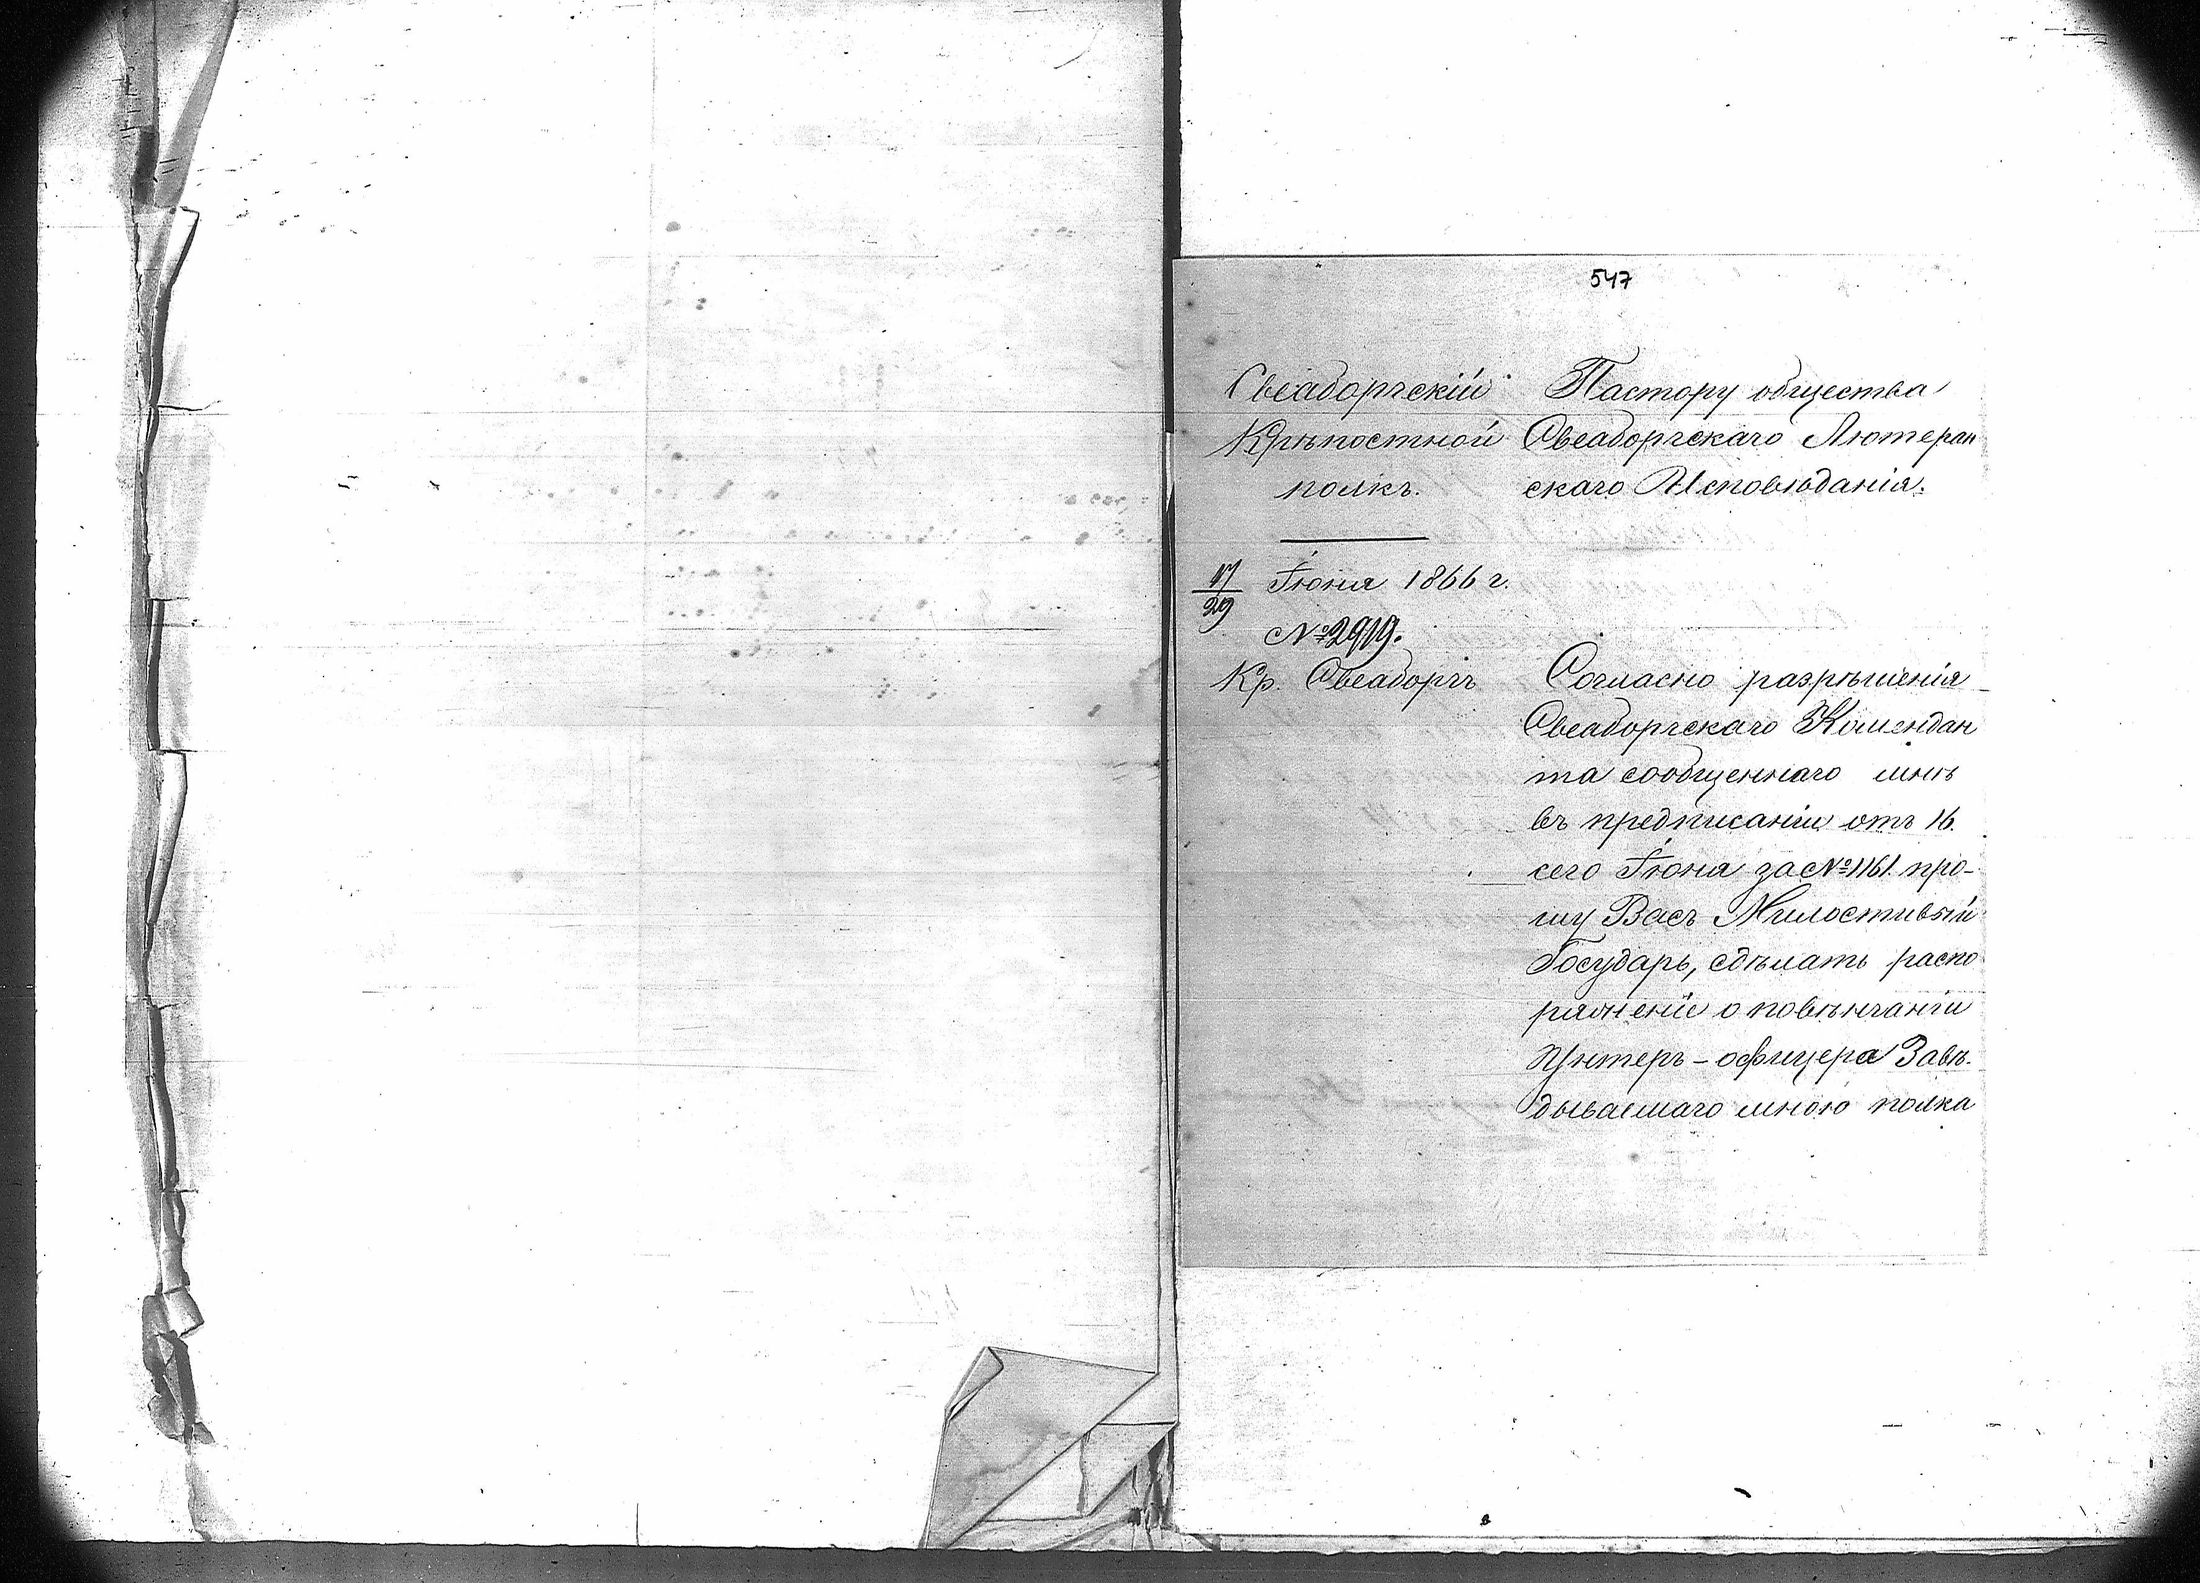 547
Свеаборгскій
Крѣпостной
полкъ.
17/29 Іюня 1866 г.
№ 2919.
Кр. Свеаборгъ
Пастору общества
Свеаборгскаго Лютеран
скаго Исповѣданія.
Согласно разрѣшенія
Свеаборгскаго Комендан
та сообщеннаго мнѣ
въ предписаніи отъ 16
сего Іюня за № 1161. про-
шу Васъ Милостивый
Государь, сдѣлать распо
ряженіе о повѣнчаніи
Унтеръ-офицера Завѣ-
дываемаго мною полка